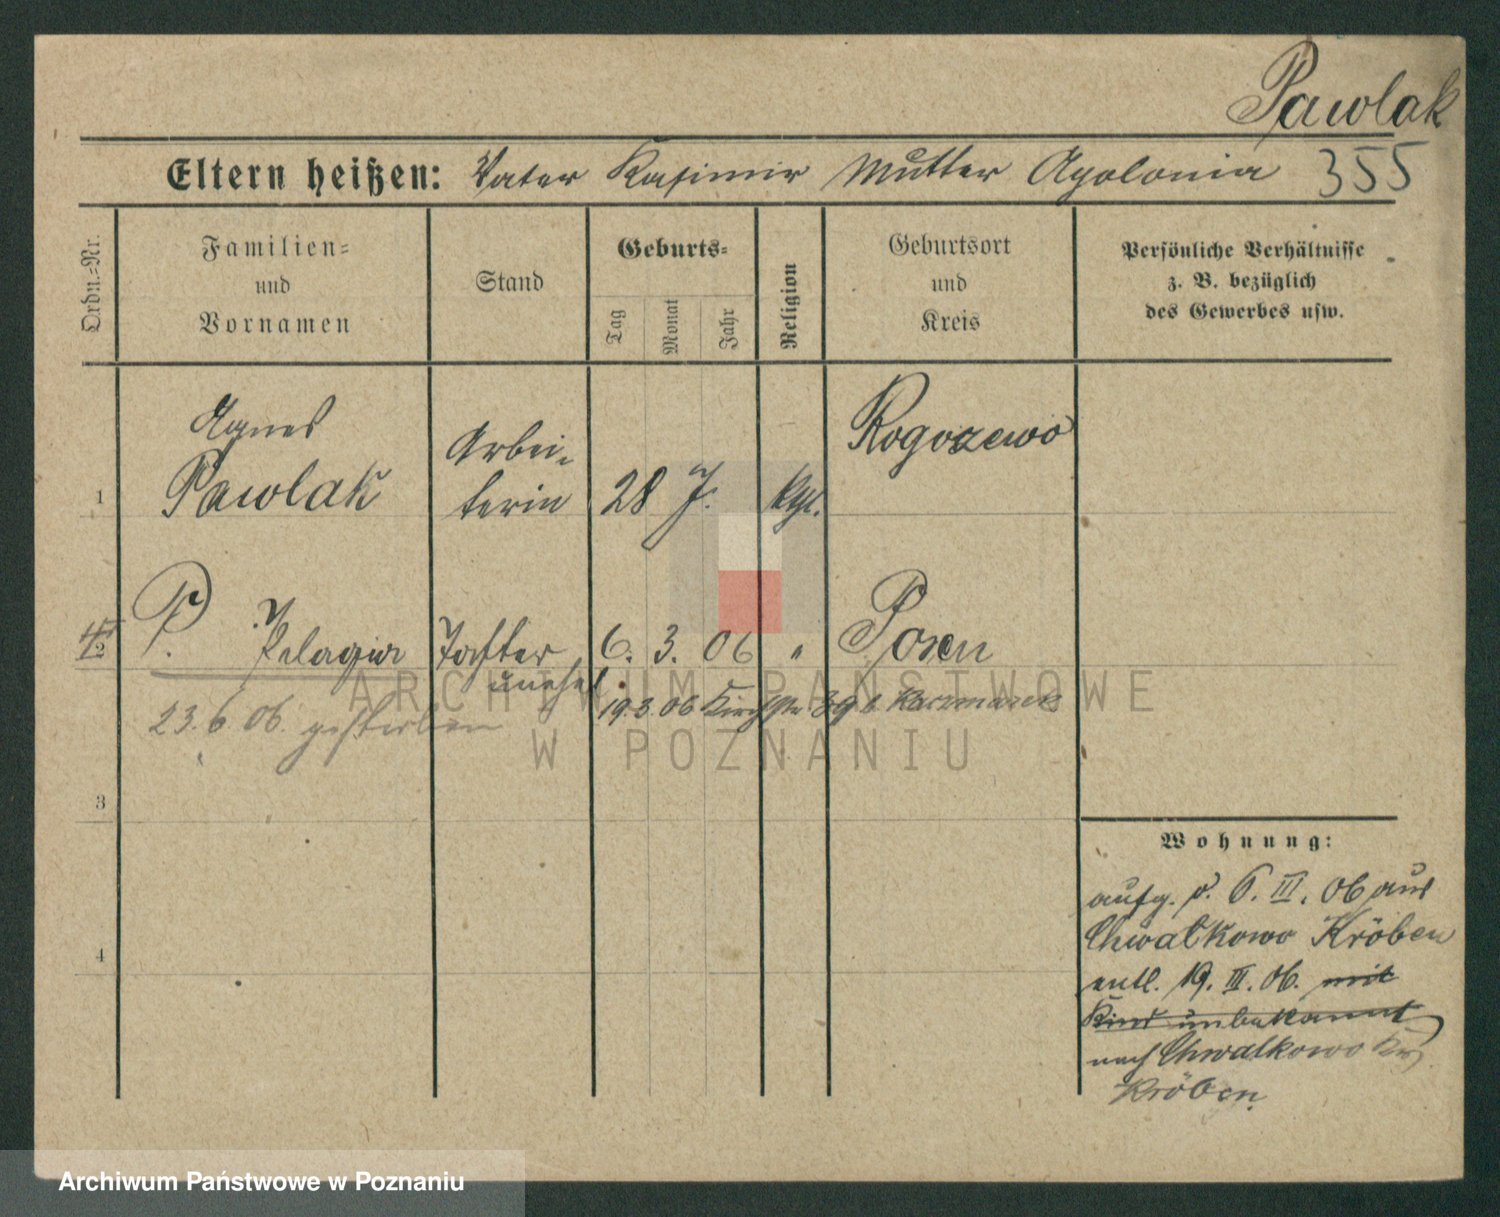 Pawlak
Eltern heißen: Vater Kasimir Mutter Apolonia 355
Ordn.=Nr.
Familien=
und
Vornamen
Stand
Geburts=
Tag
Monat
Jahr
Religion
Geburtsort
und
Kreis
Persönliche Verhältnisse
z. B. bezüglich
des Gewerbes usw.
Agnes
Pawlak
Arbei-
terin
28 J.
kath.
Rogozewo
1
P. Pelagia
Tochter
unehel.
6. 3. 06 "
Posen
2
23.6.06. gestorben
19.3.06 Kirchstr 39 b. Kaczmarek
3
4
Wohnung:
aufg. d. 6. III. 06 aus
Chwalkowo Kröben
entl. 19. III. 06. mit
Kind unbekannt
nach Chwalkowo Krs
Kröben.
ARCHIWUM PAŃSTWOWE
W POZNANIU
Archiwum Państwowe w Poznaniu